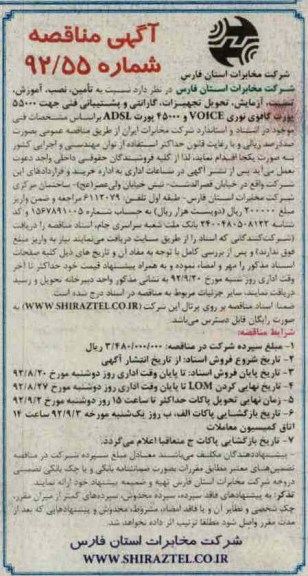 آگهی مناقصه
شماره ۹۲/۵۵
شرکت مخابرات استان فارس
شرکت مخابرات استان فارس در نظر دارد نسبت به تأمین، نصب، آموزش،
تست، آزمایش، تحویل تجهیزات، گارانتی و پشتیبانی فنی جهت ۵۵۰۰۰
پورت کافوی نوری VOICE و ۴۵۰۰۰ پورت ADSL براساس مشخصات فنی
موجود در اسناد و استاندارد شرکت مخابرات ایران از طریق مناقصه عمومی بصورت
صددرصد ریالی و با رعایت قانون حداکثر استفاده از توان مهندسی و اجرایی کشور
به صورت یکجا اقدام نماید، لذا از کلیه فروشندگان حقوقی داخلی واجد دعوت
بعمل می‌آید پس از نشر آگهی در ساعات اداری به اداره خرید و قراردادهای این
شرکت واقع در خیابان قصرالدشت- نبش خیابان ولی‌عصر(عج)- ساختمان مرکزی
شرکت مخابرات استان فارس- طبقه اول تلفن: ۶۱۱۳۰۷۹ مراجعه و ضمن واریز
مبلغ ۲۰۰۰۰۰ ریال (دویست هزار ریال) به حساب شماره ۱۵۶۷۸۹۱۰۰۵ و کد
شناسه ۲۴۰۰۴۸۰۵۰۸۱۲۲ بانک ملت شعبه سراسری جام، اسناد مناقصه را دریافت
(شرکت‌کنندگانی که اسناد را از طریق سایت دریافت می‌نمایند نیاز به واریز مبلغ
فوق ندارند) و پس از بررسی کامل با توجه به مفاد آن و تاریخ های ذیل کلیه صفحات
اسناد مذکور را مهر و امضاء نموده و به همراه پیشنهاد قیمت خود حداکثر تا آخر
وقت اداری روز شنبه مورخ ۹۲/۹/۲ به نشانی مذکور واحد دبیرخانه تحویل و رسید
دریافت نمایند، سایر جزئیات مربوط به مناقصه در اسناد درج شده است.
ضمنا اسناد مناقصه بر روی پرتال این شرکت (WWW.SHIRAZTEL.CO.IR) به
صورت رایگان قابل دسترس می‌باشد.
شرایط مناقصه:
۱- مبلغ سپرده شرکت در مناقصه: ۳/۴۸۰/۰۰۰/۰۰۰ ریال
۲- تاریخ شروع فروش اسناد: از تاریخ انتشار آگهی
۳- تاریخ پایان فروش اسناد: تا پایان وقت اداری روز دوشنبه مورخ ۹۲/۸/۲۰
۴- تاریخ نهایی کردن LOM تا پایان وقت اداری روز دوشنبه مورخ ۹۲/۸/۲۷
۵- زمان نهایی تحویل پاکات حداکثر تا ساعت ۱۵ روز دوشنبه مورخ ۹۲/۹/۲
۶- تاریخ بازگشایی پاکات الف، ب روز یک‌شنبه مورخه ۹۲/۹/۳ ساعت ۱۴
اتاق کمیسیون معاملات
۷- تاریخ بازگشایی پاکات ج متعاقبا اعلام می‌گردد.
- پیشنهاددهندگان مکلف می‌باشند معادل مبلغ سپرده شرکت در مناقصه
تضمین‌های معتبر مطابق مقررات بصورت ضمانتنامه بانکی و یا چک بانکی تضمینی
در وجه شرکت مخابرات استان فارس تهیه و ضمیمه پیشنهاد خود ارائه نمایند.
تذکر: به پیشنهادهای فاقد سپرده، سپرده مخدوش، سپرده‌های کمتر از میزان مقرر،
چک شخصی و نظایر آن و یا فاقد امضاء، مشروط، مخدوش و پیشنهادهایی که بعد از
مدت مقرر واصل شود مطلقا ترتیب اثر داده نخواهد شد.
شرکت مخابرات استان فارس
WWW.SHIRAZTEL.CO.IR